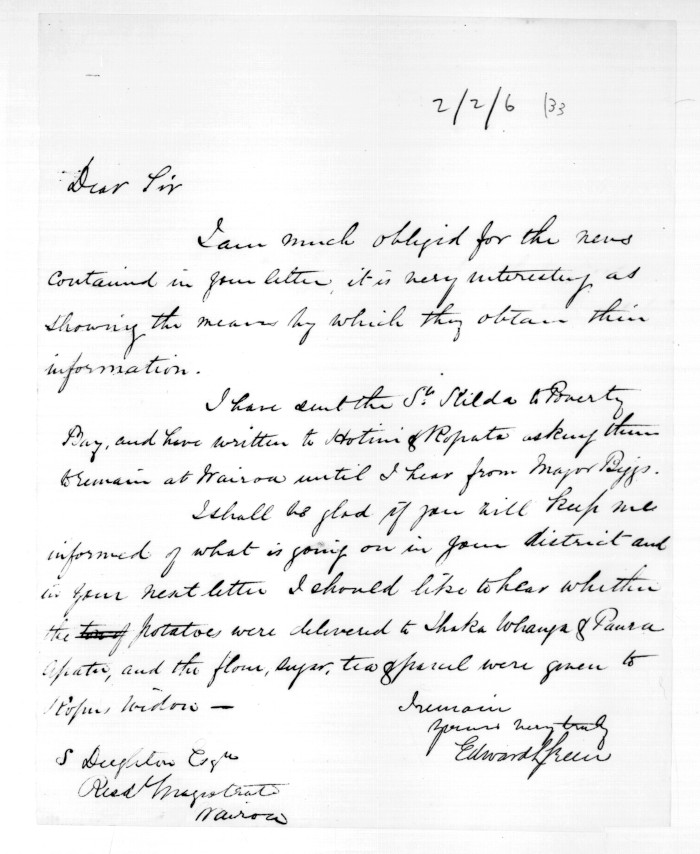 2/2/6 133
Dear Sir
I am much obliged for the news
contained in your letter, it is very interesting as
showing the means by which they obtain their
information.
I have sent the St. Kilda to Poverty
Bay, and have written to Hotini & Ropata asking them
to remain at Wairoa until I hear from Major Biggs.
I shall be glad if you will keep me
informed of what is going on in your district and
in your next letter I should like to hear whether
the ton of potatoes were delivered to Ihaka Whanga & Paora
Apatu, and the flour, sugar, tea & parcel were given to
Kopu's Widow —
I remain
Yours very truly
Edward Green
S Deighton Esqre
Resdt Magistrate
Wairoa